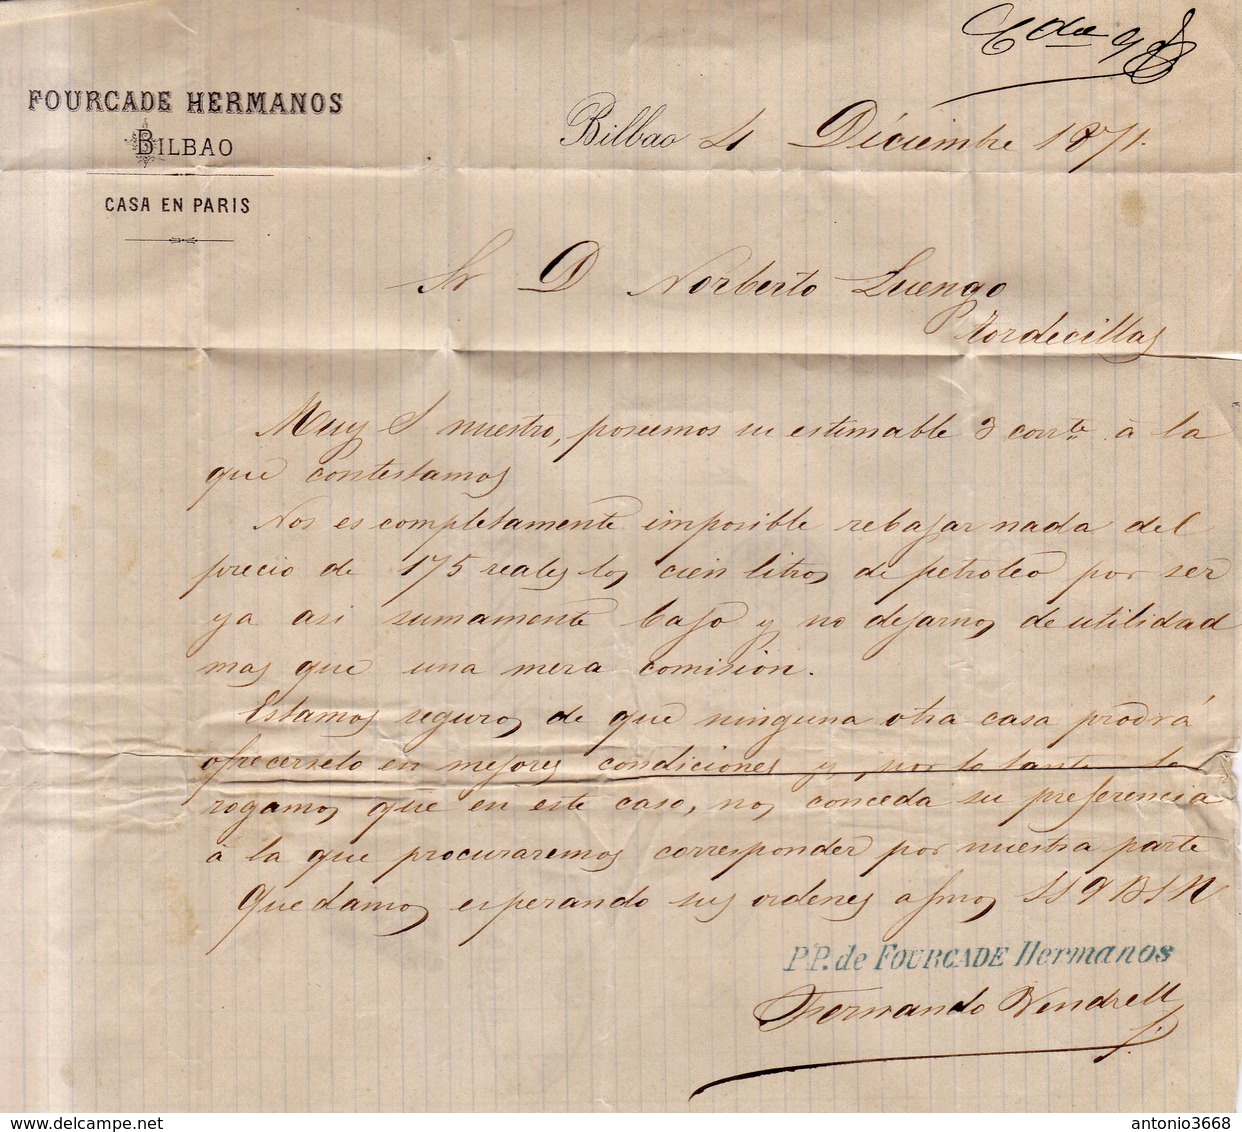 FOURCADE HERMANOS
BILBAO
CASA EN PARIS
Bilbao 4 Diciembre 1871.
Sr D Norberto Luengo
Tordecillas
Muy S nuestro, poseemos su estimable 3 corrte. à la
que contestamos
Nos es completamente imposible rebajar nada del
precio de 175 reales los cien litros de petroleo por ser
ya asi sumamente bajo y no dejarnos de utilidad
mas que una mera comisión.
Estamos seguros de que ninguna otra casa prodrá
ofrecerselo en mejores condiciones y, por lo tanto le
rogamos que en este caso, nos conceda su preferencia
à la que procuraremos corresponder por nuestra parte
Quedamos esperando sus ordenes afmos SS Q B S M
P.P. de FOURCADE Hermanos
Fernando Vendrell
antonio3668